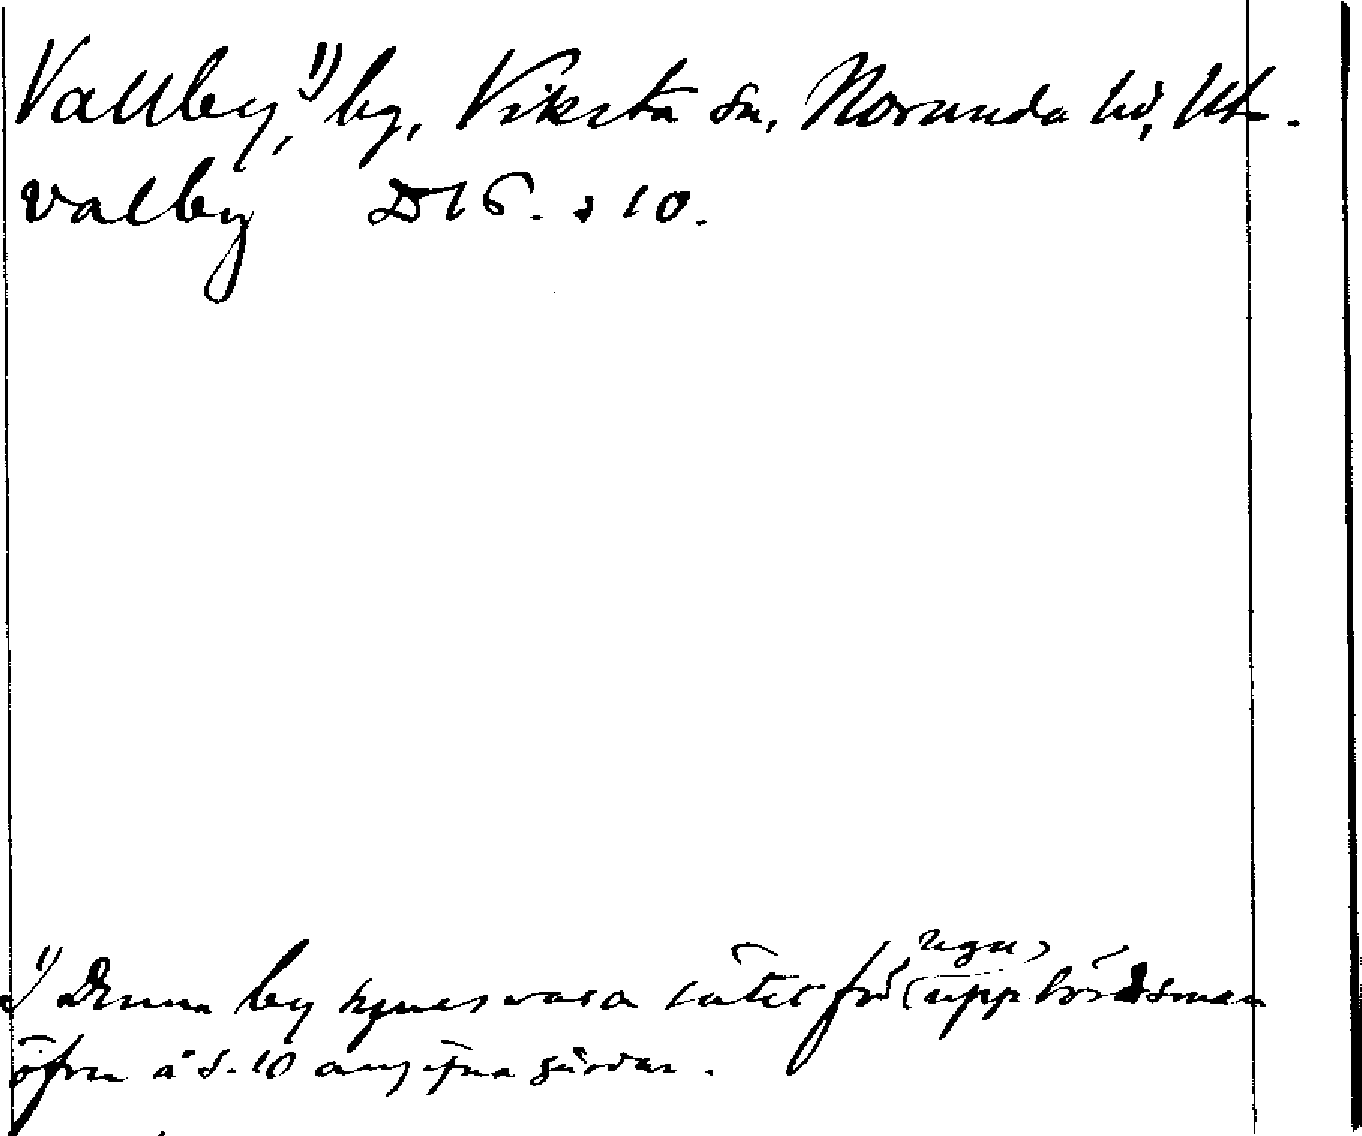 Vallby,¹⁾ by, Viksta sn, Norunda hd, Upl.
valby D16. s 10.
¹⁾ Denna by synes vara sätet för uppbördsman
öfver å s. 10 angifna gårdar.